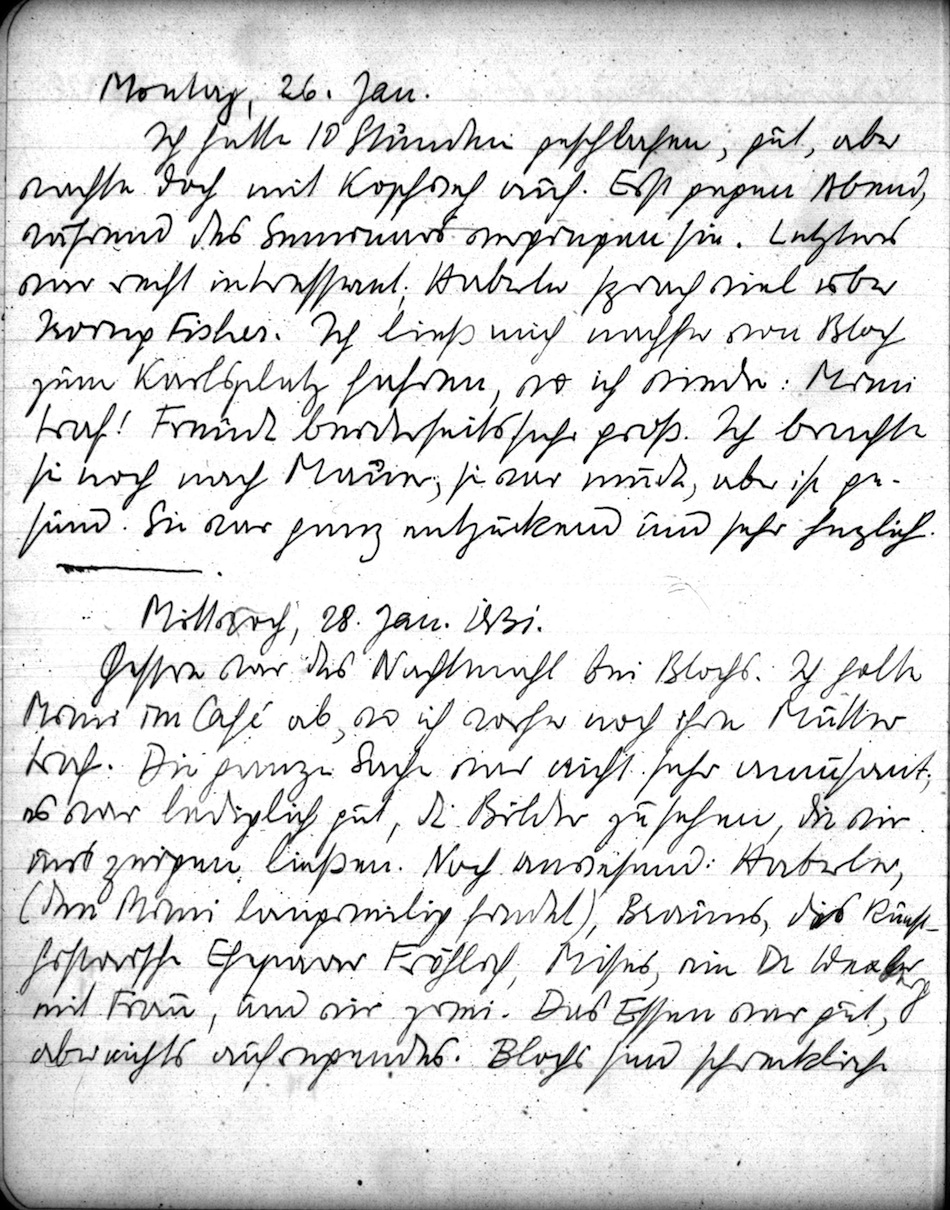 Montag, 26. Jan.
Ich hatte 10 Stunden geschlafen, gut, aber
wachte doch mit Kopfweh auf. Erst gegen Abend,
während des Seminars vergingen sie. Letzteres
war recht interessant; Haberler sprach viel über
Irving Fisher. Ich ließ mich nachher von Bloch
zum Karlsplatz fahren, wo ich wieder: Mimi
traf! Freude beiderseits sehr groß. Ich brachte
sie noch nach Mauer; sie war müde, aber ist ge-
sund. Sie war ganz entzückend und sehr herzlich.
Mittwoch, 28. Jan. 1931.
Gestern war das Nachtmahl bei Blochs. Ich holte
Mimi im Café ab, wo ich vorher noch ihre Mutter
traf. Die ganze Sache war nicht sehr amüsant;
es war lediglich gut, die Bilder zu sehen, die wir
uns zeigen ließen. Noch anwesend: Haberler,
(den Mimi langweilig findet), Brauns, das Kunst-
historische Ehepaar Fröhlich, Mises, ein Dr
mit Frau, und wir zwei. Das Essen war gut,
aber nichts aufregendes. Blochs sind schreckliche